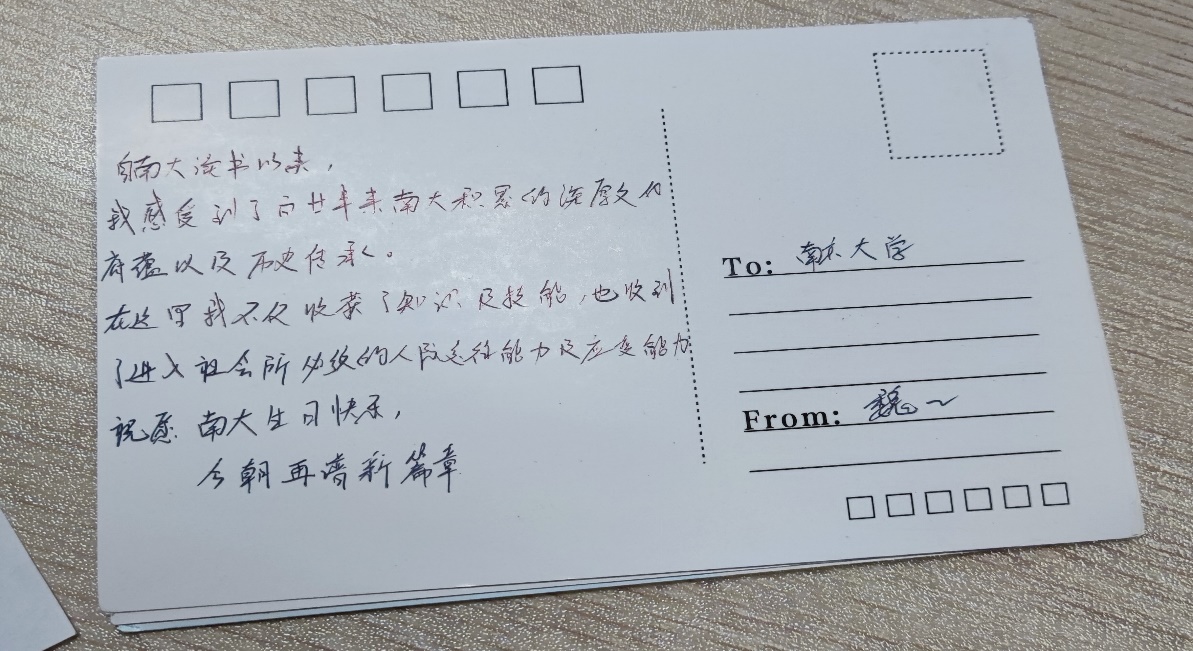 自南大读书以来，
我感受到了百廿年来南大积累的深厚文化
底蕴以及历史传承。
在这里我不仅收获了知识及技能，也收到
了进入社会所必须的人际交往能力及应变能力
祝愿 南大生日快乐，
今朝再谱新篇章
To: 南京大学
From: 魏